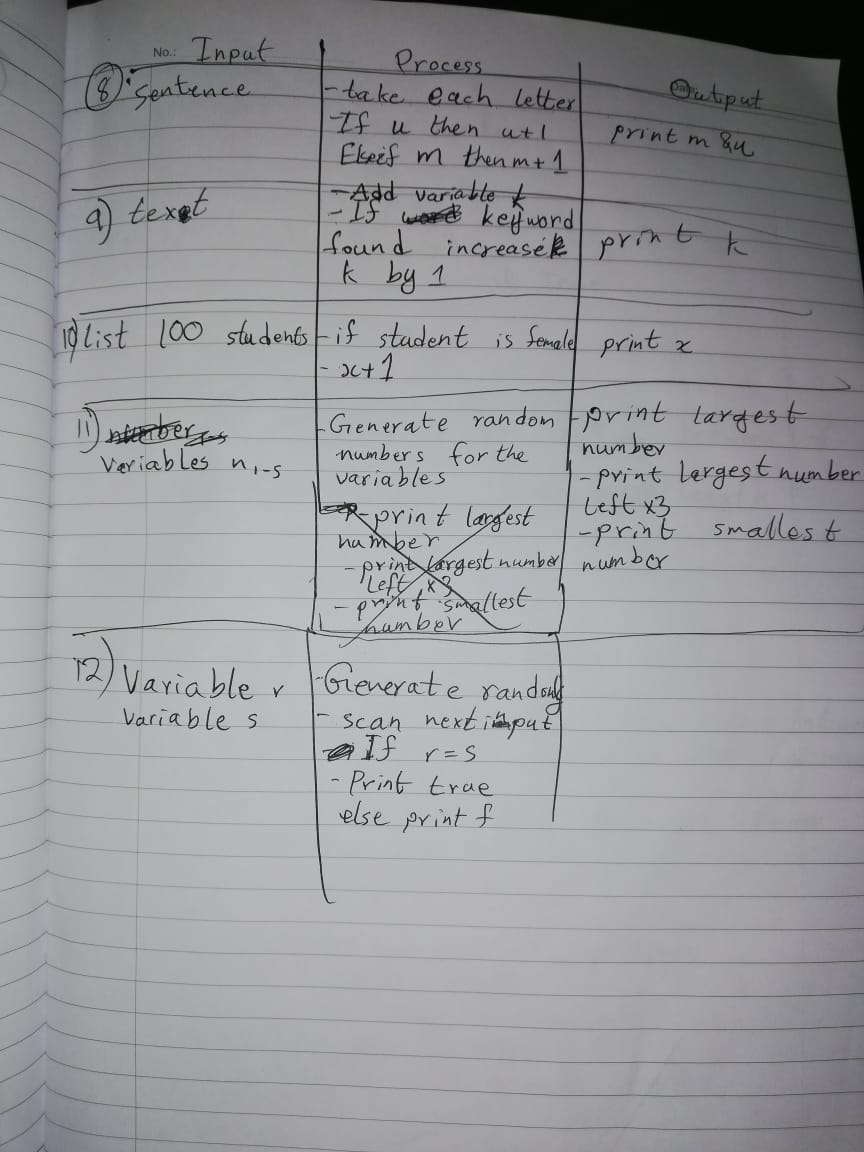 No.: Input
Process
Output
8) sentence
- take each letter
- If u then u+1
Elseif m then m+1
print m & u
9) text
- Add variable k
- If keyword
found increase
k by 1
print k
10) list 100 students
- if student is female
- x+1
print x
11)
Variables n1-5
- Generate random
numbers for the
variables
- print largest
number
- print largest number
left x3
- print smallest
number
- print largest
number
- print largest number
left x3
- print smallest
number
12) Variable r
variable s
- Generate random
- scan next input
If r=s
- Print true
else print f